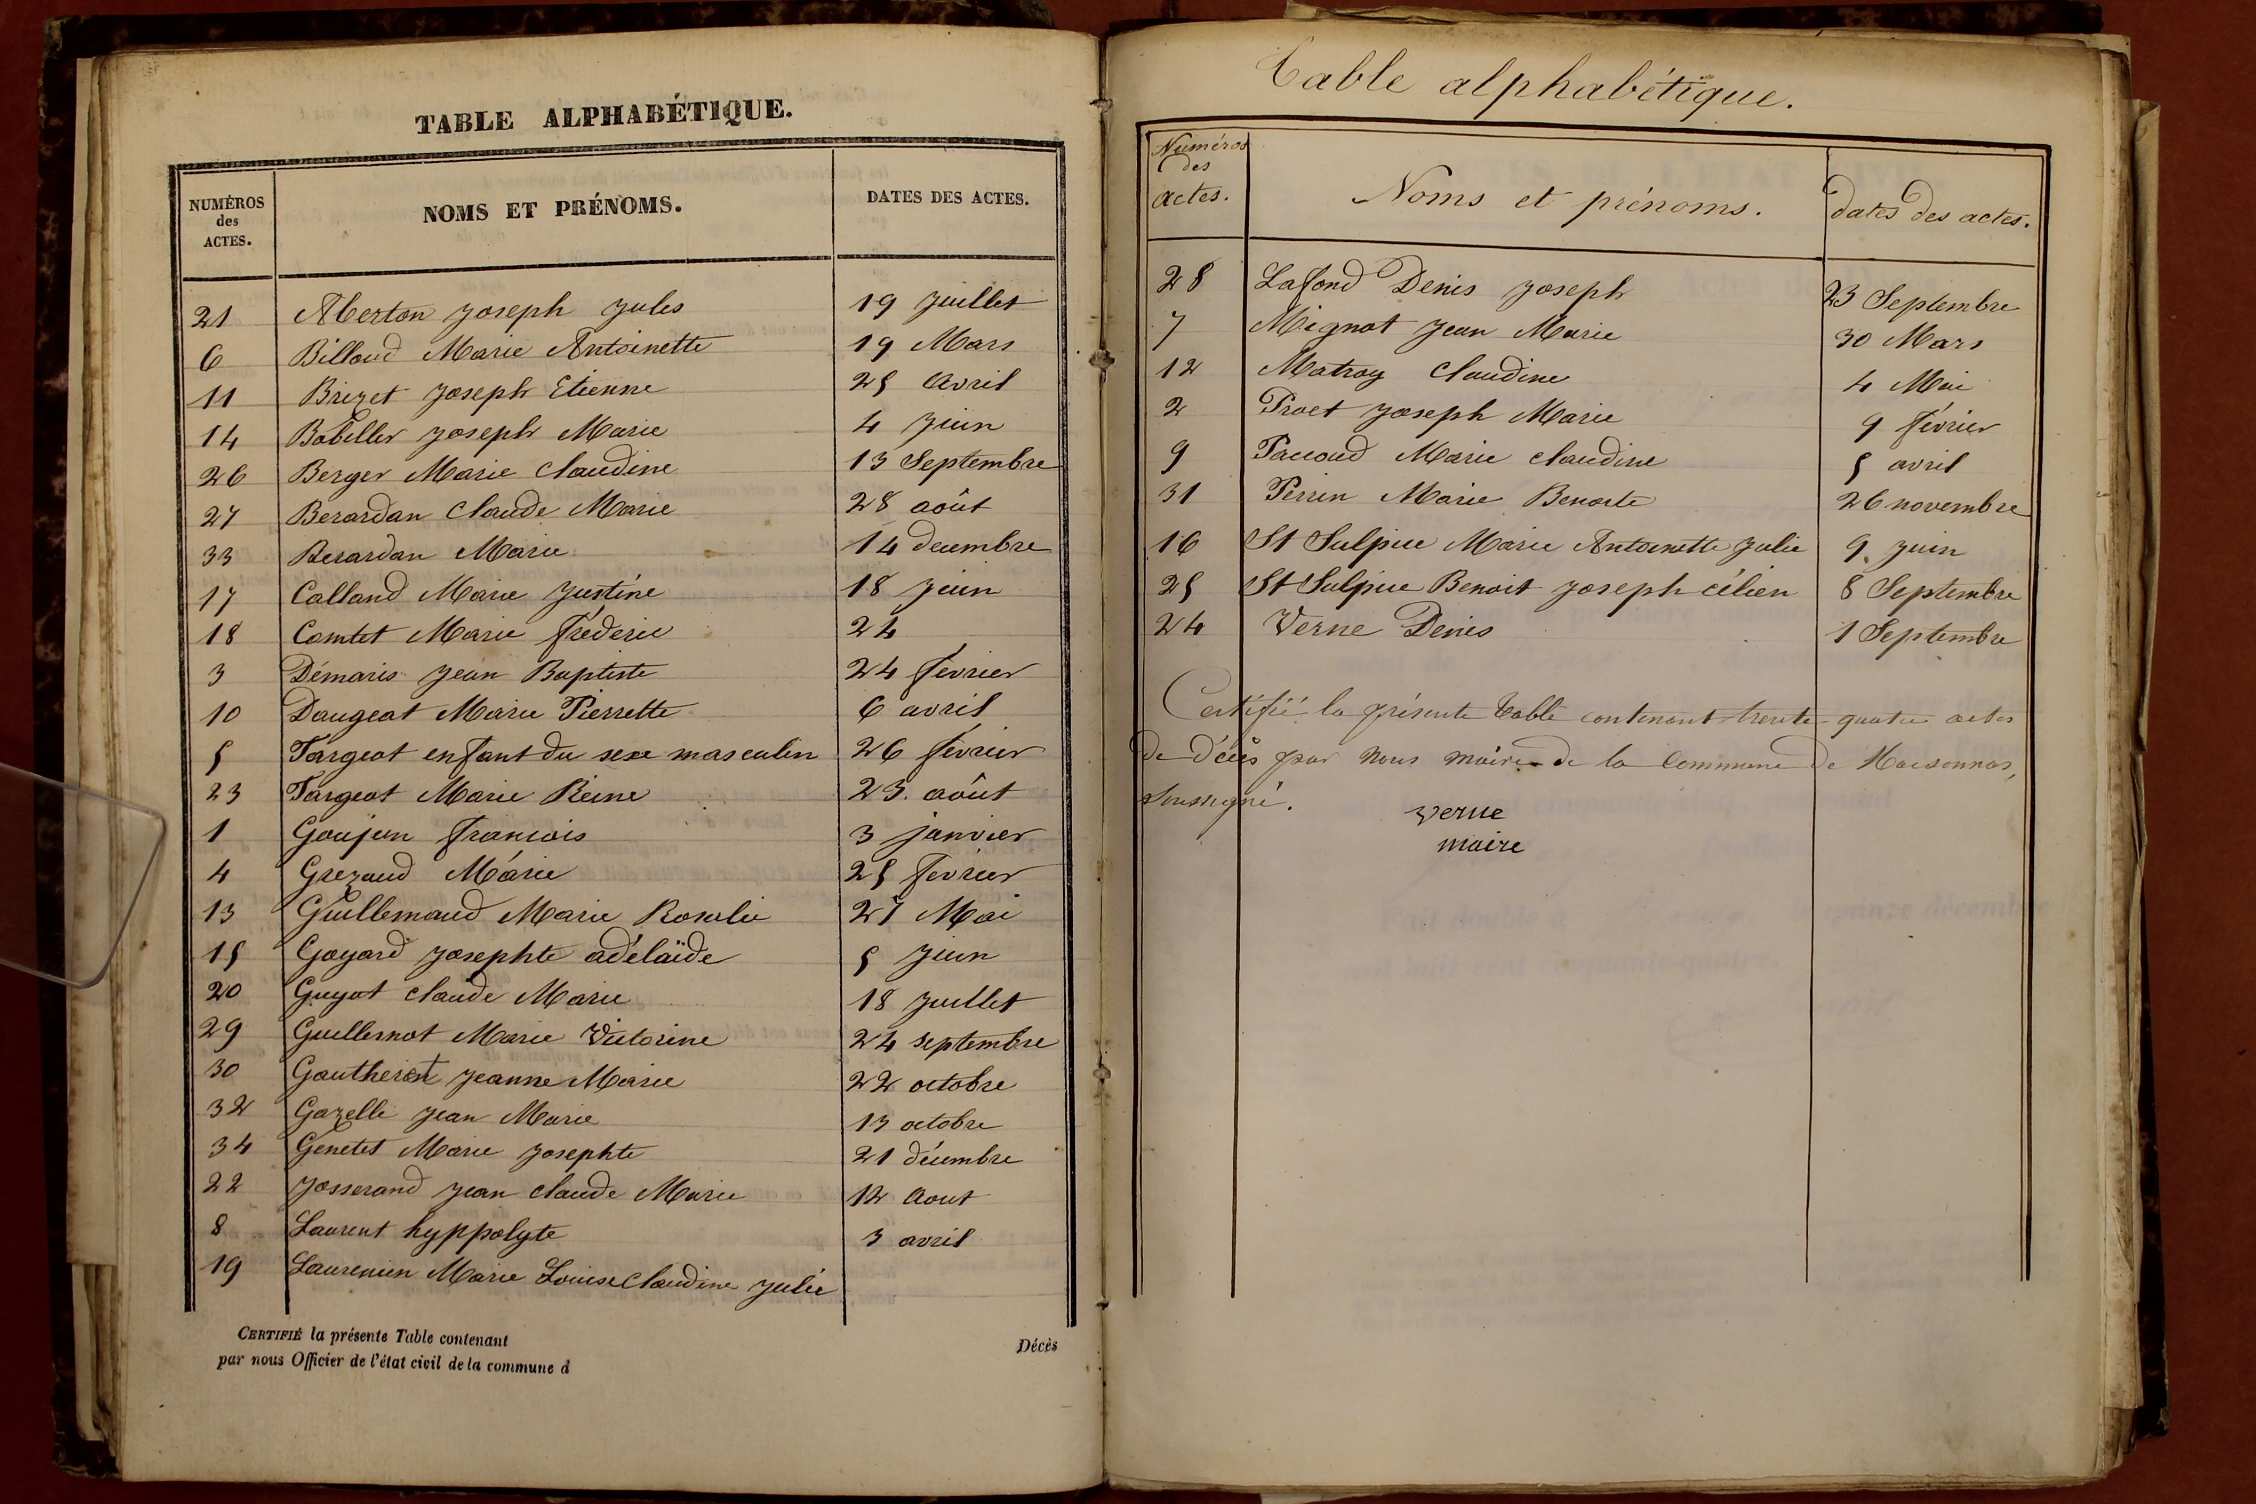 TABLE ALPHABÉTIQUE.
NUMÉROS des ACTES. NOMS ET PRÉNOMS. DATES DES ACTES.
21 Aberton Joseph Jules 19 Juillet
6 Billoud Marie Antoinette 19 Mars
11 Brizet Joseph Etienne 25 Avril
14 Bobiller Joseph Marie 4 Juin
26 Berger Marie Claudine 13 Septembre
27 Berardan Claude Marie 28 août
33 Berardan Marie 14 decembre
17 Calland Marie Justine 18 Juin
18 Comtet Marie fréderic 24
3 Démaris Jean Baptiste 24 fevrier
10 Daugeat Marie Pierrette 6 avril
5 Fargeot enfant du sexe masculin 26 fevrier
23 Fargeot Marie Reine 23. août
1 Goujon francois 3 janvier
4 Grezaud Marie 25 fevrier
13 Guillemaud Marie Rosalie 27 Mai
15 Goyard Josephte adélaïde 5 Juin
20 Guyot Claude Marie 18 Juillet
29 Guillemot Marie Victorine 24 septembre
30 Gautheret Jeanne Marie 22 octobre
32 Gazelle Jean Marie 13 octobre
34 Genetet Marie Josephte 21 décembre
22 Josserand Jean Claude Marie 12 Aout
8 Laurent hyppolyte 3 avril
19 Laurencien Marie Louise Claudine Julie
CERTIFIÉ la présente Table contenant Décès
par nous Officier de l'état civil de la commune d
Table alphabétique.
Numéros des actes. Noms et prénoms. dates des actes.
28 Lafond Denis Joseph 23 Septembre
7 Mignot Jean Marie 30 Mars
12 Matray Claudine 4 Mai
2 Proet Joseph Marie 9 février
9 Pacoud Marie Claudine 5 avril
31 Perrin Marie Benoite 26 novembre
16 St Sulpice Marie Antoinette Julie 9 Juin
25 St Sulpice Benoit Joseph célien 8 Septembre
24 Verne Denis 1 Septembre
Certifié la présente table contenant trente-quatre actes
de décès par nous maire de la commune de
soussigné.
Verne
maire